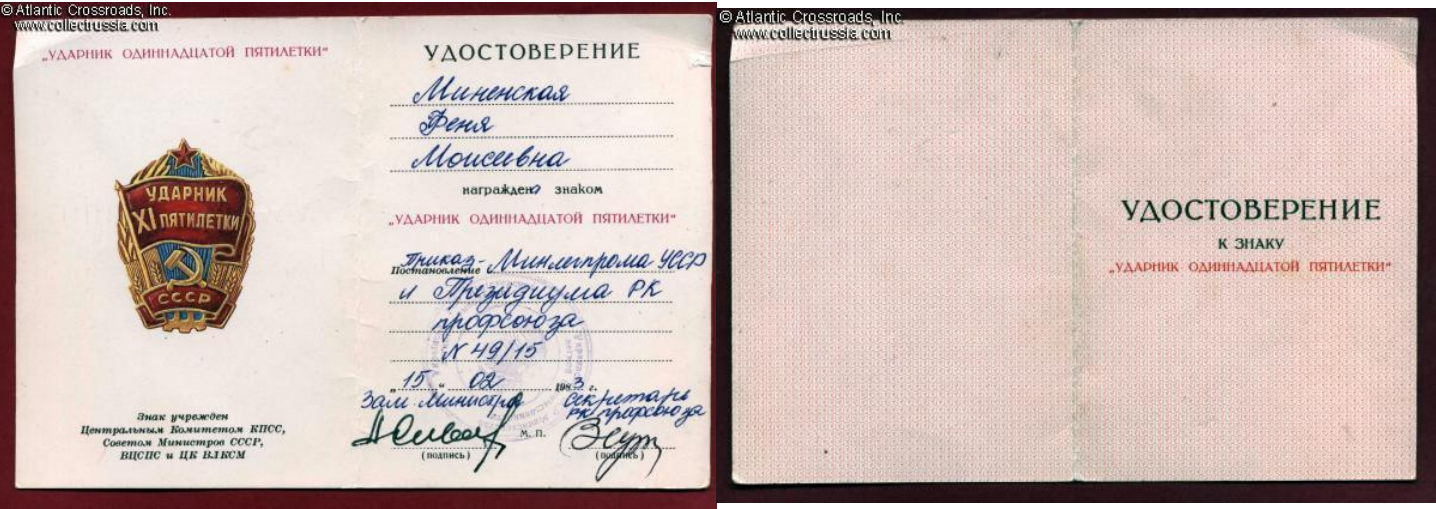 © Atlantic Crossroads, Inc.
www.collectrussia.com
„УДАРНИК ОДИННАДЦАТОЙ ПЯТИЛЕТКИ“
УДАРНИК
XI ПЯТИЛЕТКИ
СССР
Знак учрежден
Центральным Комитетом КПСС,
Советом Министров СССР,
ВЦСПС и ЦК ВЛКСМ
УДОСТОВЕРЕНИЕ
Миненская
Феня
Моисеевна
награждена знаком
„УДАРНИК ОДИННАДЦАТОЙ ПЯТИЛЕТКИ“
Приказ-
Постановление Минлегпрома УССР
и Президиума РК
профсоюза
N 49/15
„15“ 02 1983 г.
Зам. Министра секретарь
РК профсоюза
М. П.
(подпись) (подпись)
© Atlantic Crossroads, Inc.
www.collectrussia.com
УДОСТОВЕРЕНИЕ
К ЗНАКУ
„УДАРНИК ОДИННАДЦАТОЙ ПЯТИЛЕТКИ“